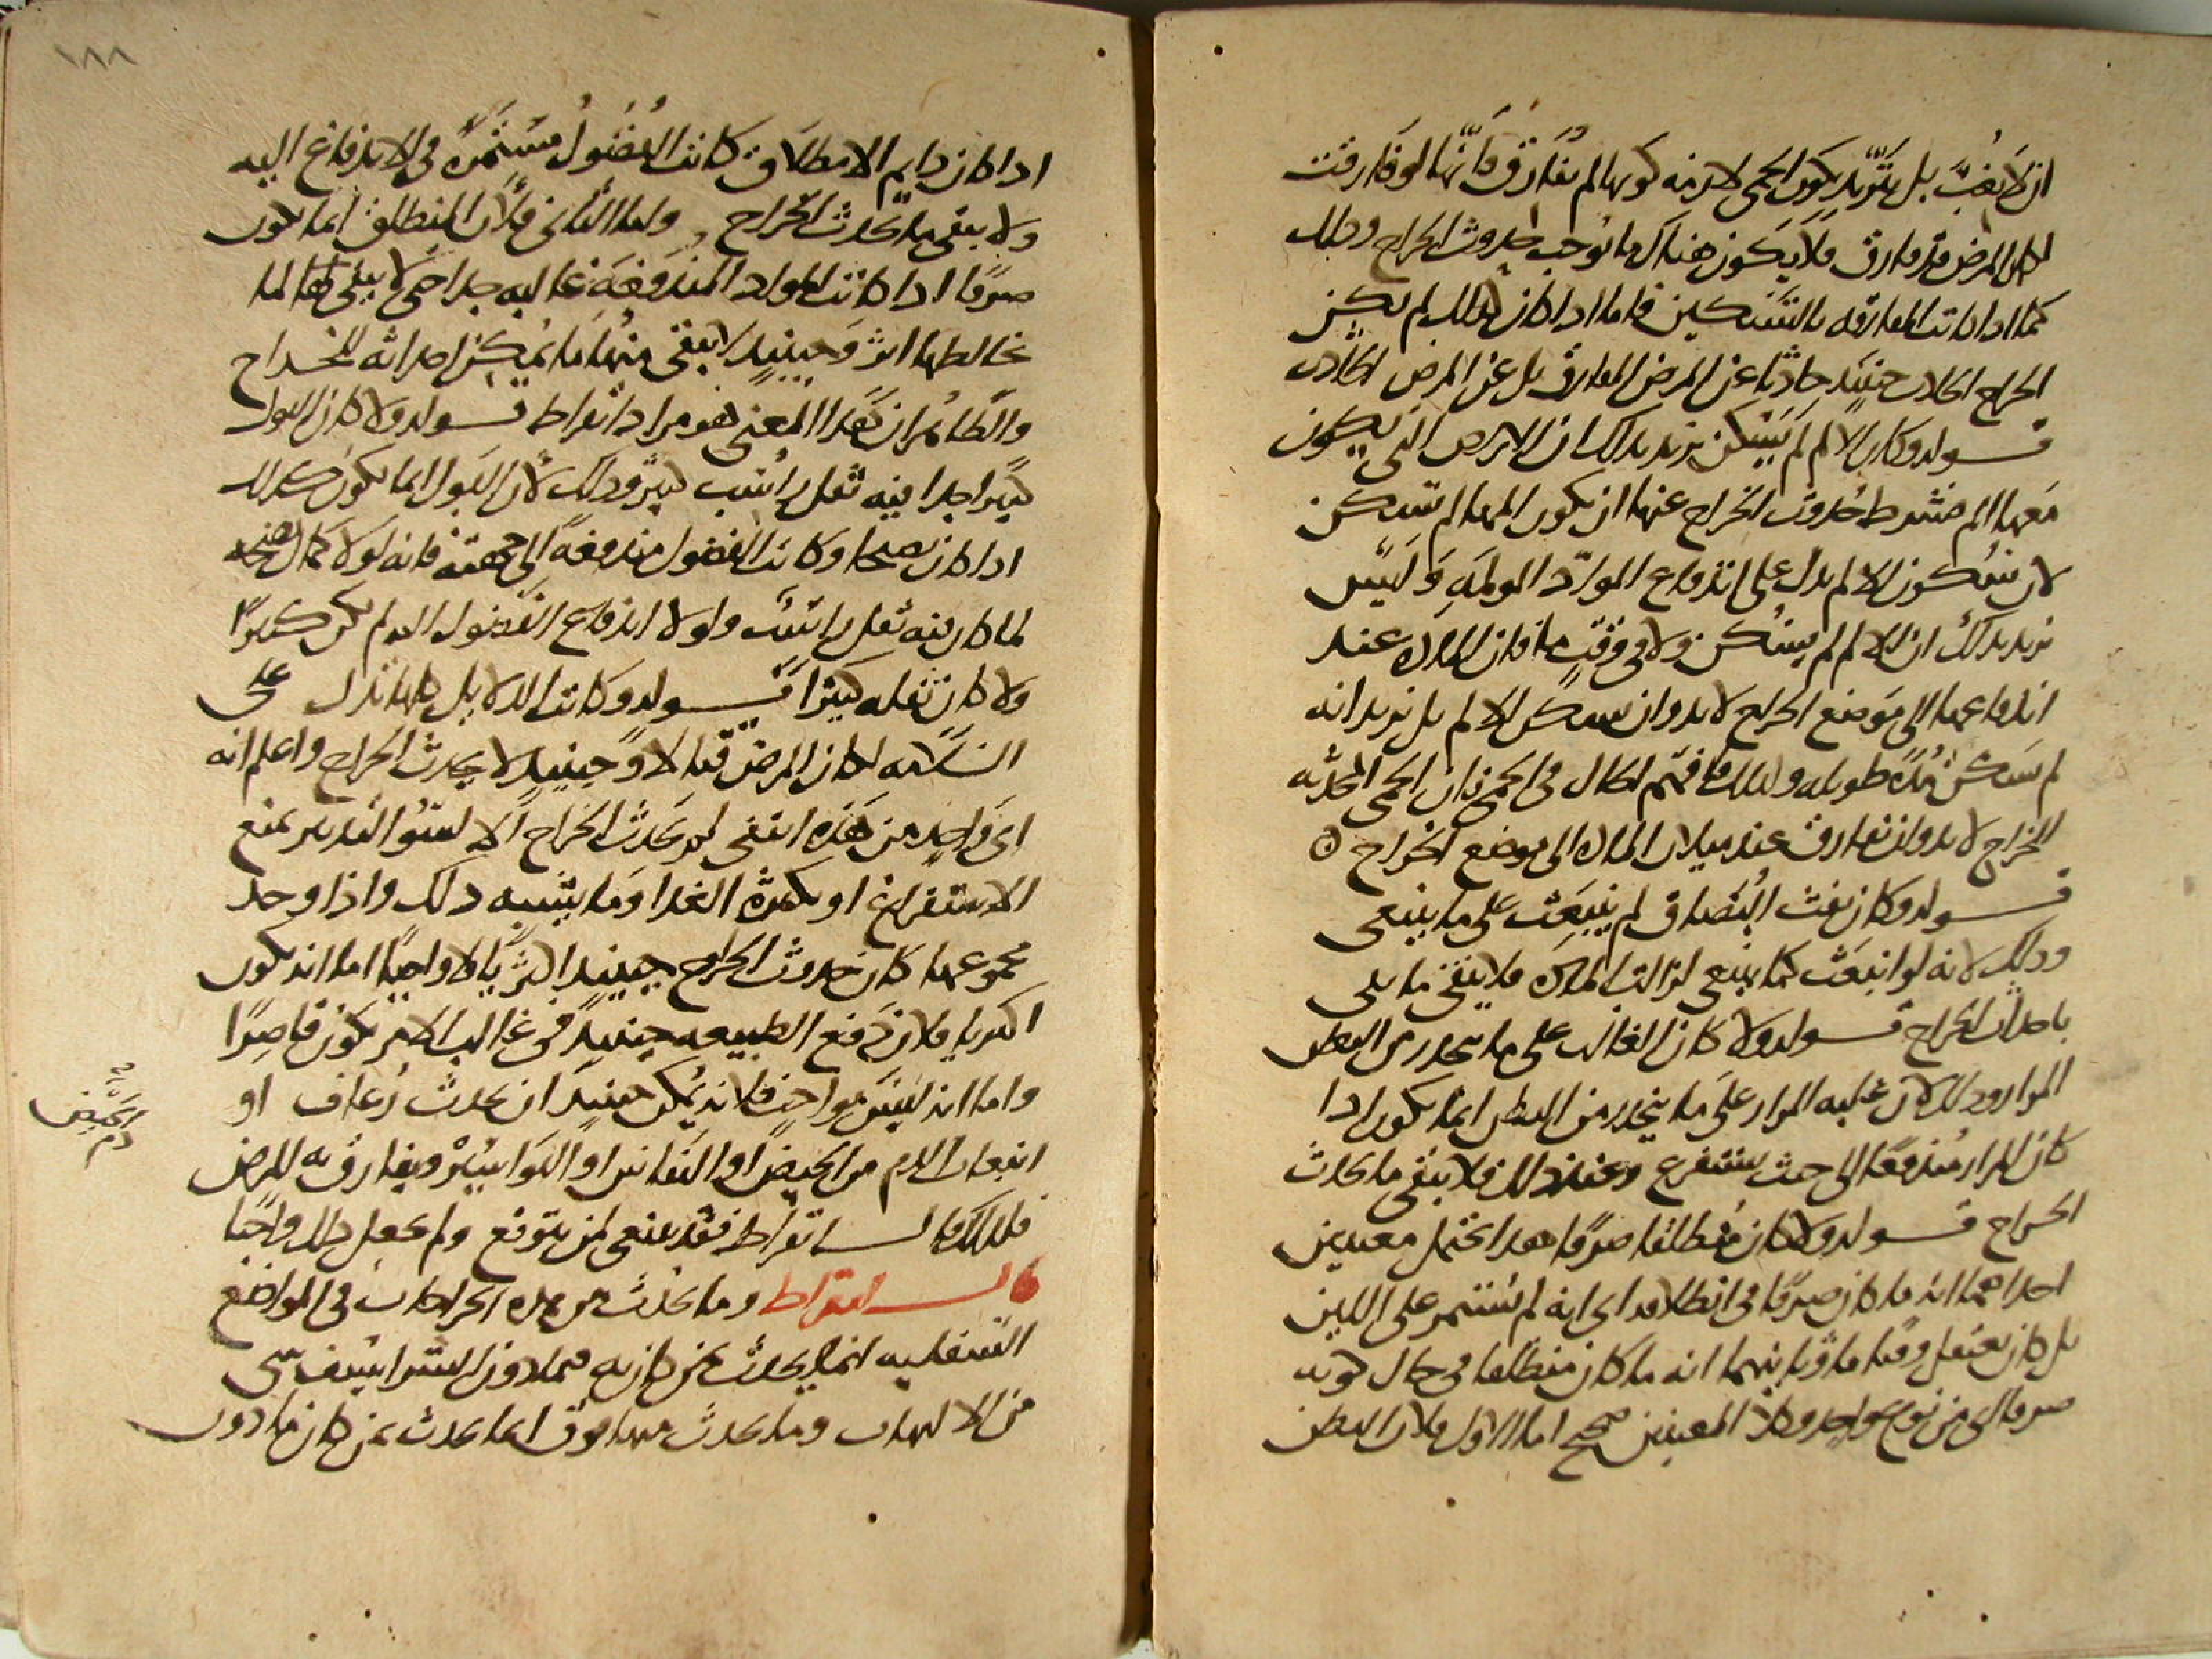 ان لا يغب بل يريد بكون الحمى لازمة كونها لم تفارق فانها لو فارقت
لكان المرض قد فارق فلا يكون هناك ما يوجب حدوث الخراج وذلك
كما اذا كانت المفارقة بالتسكين فاما اذا كان كذلك لم يكن
الخراج الحادث حينئذ حادثا عن المرض المفارق بل عن المرض الحادث
قوله وكان الالم لم يسكن يريد بذلك ان الامراض التي يكون
معها الم فشرط حدوث الخراج عنها ان يكون المها لم يسكن
لان سكون الالم يدل على اندفاع المواد المولمة وليس
يريد بذلك ان الالم لم يسكن ولا في وقت ما فان المادة عند
اندفاعها الى موضع الخراج لا بد وان يسكن الالم بل يريد انه
لم يسكن مدة طويله وكذلك فافهم الحال في الحمى فان الحمى المحدثه
للخراج لا بد وان تفارق عند ميلان المادة الى موضع الخراج
قوله وكان نفث البصاق لم ينبعث على ما ينبغي
وذلك لانه لو انبعث كما ينبغي لزالت المادة فلا يبقى ما يلي
باحداث الخراج قوله ولا كان الغالب على ما ينحدر من البطن
المرار وذلك لان غلبه المرار على ما ينحدر من البطن انما يكون اذا
كان المرار مندفعا الى حيث يستفرغ وعند ذلك فلا يبقى ما يحدث
الخراج قوله ولا كان منطلقا صرفا هذا يحتمل معنيين
احداهما انه ما كان صرفا في انطلاقه اي انه لم يستمر على اللين
بل كان يعتقل وقتا ما وثانيهما انه ما كان منطلقا في حال كونه
صرفا اي من نوع واحد وكلا المعنيين صحيح اما الاول فلان البطن
١٨٨
اذا كان دايم الانطلاق كانت الفضول مستمرة في الاندفاع اليه
ولا يبقى ما يحدث الخراج واما الثاني فلان المنطلق انما يكون
صرفا اذا كانت المواد المندفعة غالبه جدا حتى لا يبقى لها لما
يخالطها اثر وحينئذ لا يبقى منها ما يمكن احداثه للخراج
والظاهر ان هذا المعنى هو مراد ابقراط قوله ولا كان البول
كثيرا جدا فيه ثفل راسب كثير وذلك لان البول انما يكون كذلك
اذا كان نضجا وكانت الفضول مندفعة الى جهته فانه لولا كمال النضج
لما كان فيه ثفل راسب ولولا اندفاع الفضول اليه لم يكن كثيرا
ولا كان ثفله كثيرا قوله وكانت الدلايل كلها تدل على
السلامه لكان المرض قتالا وحينئذ لا يحدث الخراج واعلم انه
اي واحد من هذه انتفى لم يحدث الخراج الا لسوء التدبير بمنع
الاستفراغ او بكثرة الغذا وما يشبه ذلك واذا وجد
مجموعها كان حدوث الخراج حينئذ اكثريا لا واجبا اما انه يكون
اكثريا فلان دفع الطبيعه حينئذ في غالب الامر يكون قاصرا
واما انه ليس بواجب فلانه يمكن حينئذ ان يحدث رعاف او
انبعاث الدم من الحيض او النفاس او البواسير ويفارق به المرض
فلذلك قال ابقراط فقد ينبغي لمن يتوقع ولم يجعل ذلك واجبا
قال ابقراط وما يحدث من هذه الخراجات في المواضع
السفليه انما يحدث عمن كان به فيما دون الشراسيف شي
من الالتهاب وما يحدث منها فوق انما يحدث عمن كان ما دون
دم الحيض